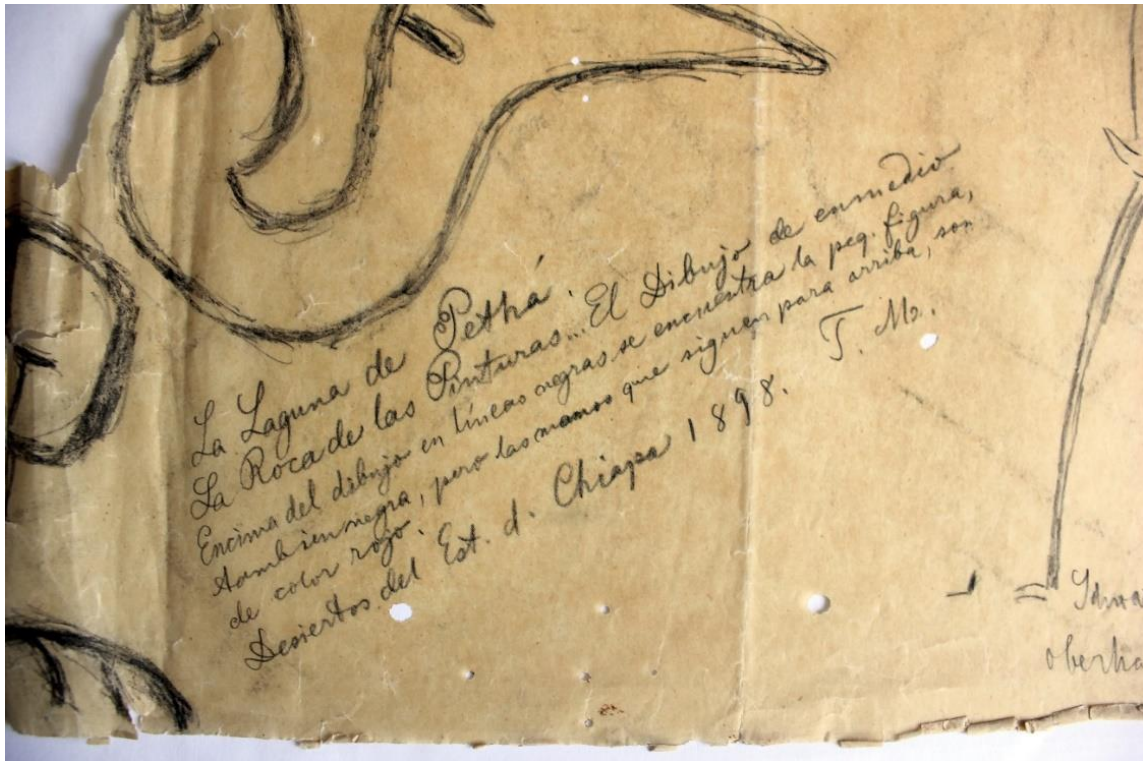 La Laguna de Pethá.
La Roca de las Pinturas... El Dibujo de enmedio
Encima del dibujo en líneas negras se encuentra la peq. figura,
tambien negra, pero las manos que siguen para arriba, son
de color rojo.
Desiertos del Est. d. Chiapa 1898. T. M.
oberha